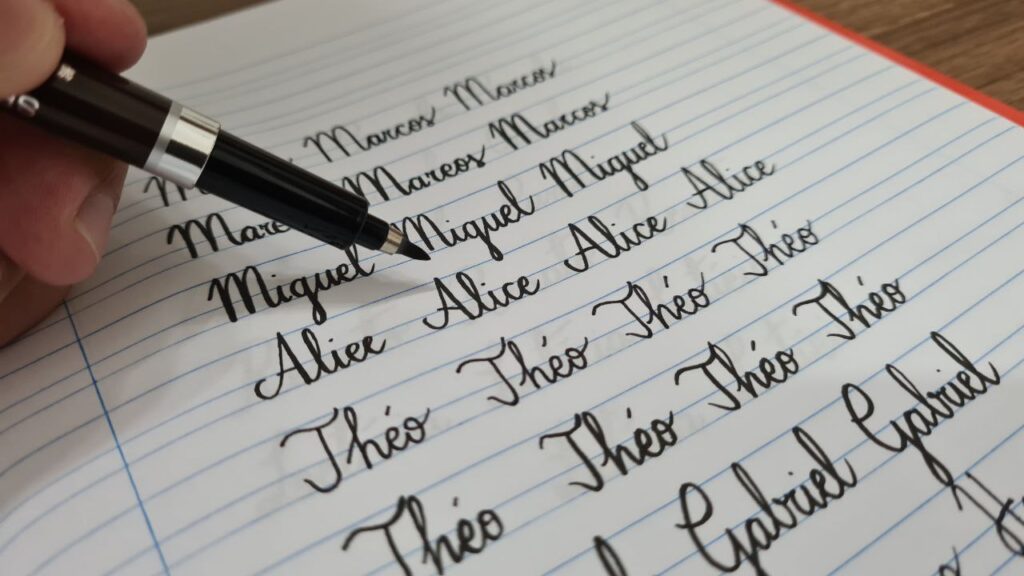 Marcos Marcos
Marcos Marcos
Miguel Miguel Miguel
Alice Alice Alice Alice
Théo Théo Théo Théo
Théo Théo Théo Théo
Gabriel Gabriel